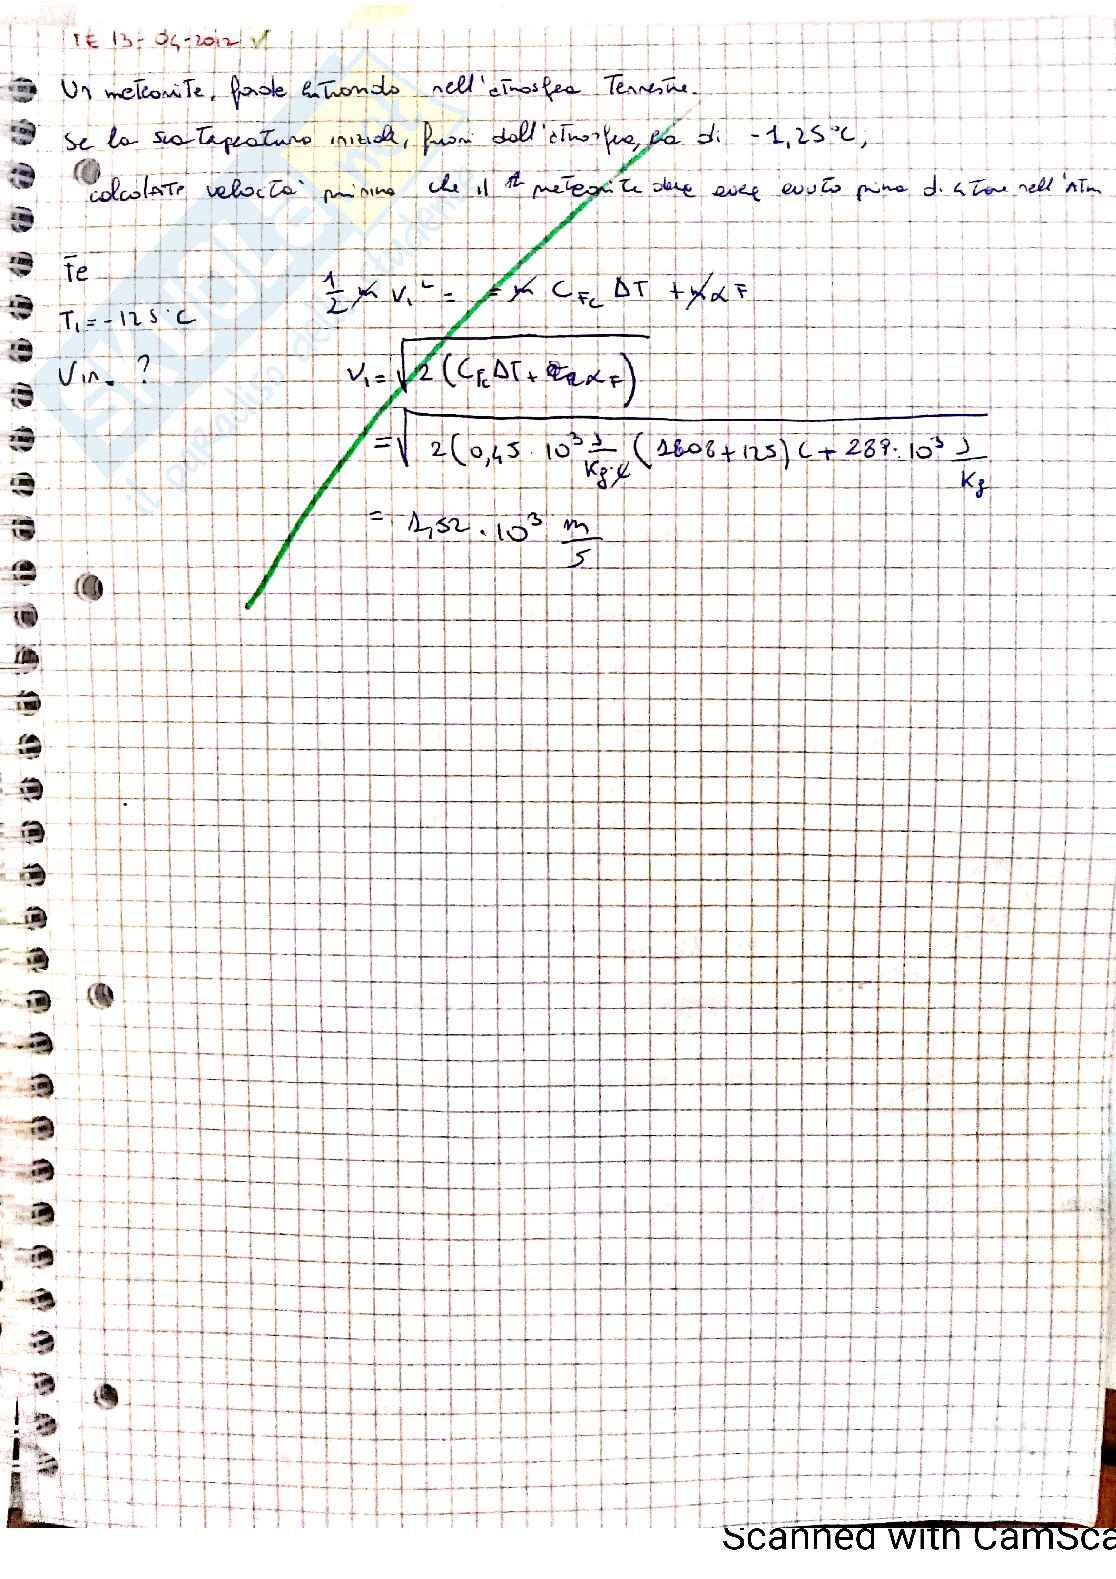 TE 13-04-2012 √
Un meteorite, fonde entrando nell'atmosfera Terrestre.
Se la sua temperatura iniziale, fuori dall'atmosfera, era di -1,25 °C,
calcolate velocità minima che il meteorite deve avere avuto prima di entrare nell'Atm
Fe
T₁ = -125 °C
Vin. ?
1/2 m V₁² = = m C_Fe ΔT + m α F
V₁ = √2 (C_Fe ΔT + α F)
= √2 (0,45 · 10³ J/Kg·C (1808 + 125) C + 289 · 10³ J/Kg
= 1,52 · 10³ m/s
SKUOLA.net
il paradiso dello studente
Scanned with CamSca